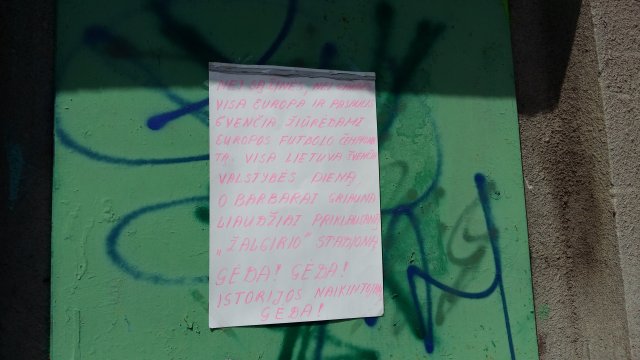 NEI SĄŽINĖS, NEI
VISA EUROPA IR PASAULIS
ŠVENČIA ŽIŪRĖDAMI
EUROPOS FUTBOLO ČEMPIONA
TĄ. VISA LIETUVA ŠVENČIA
VALSTYBĖS DIENĄ
O BARBARAI GRIAUNA
LIAUDŽIAI PRIKLAUSANTĮ
„ŽALGIRIO" STADIONĄ
GĖDA! GĖDA!
ISTORIJOS NAIKINTOJAI
GĖDA!